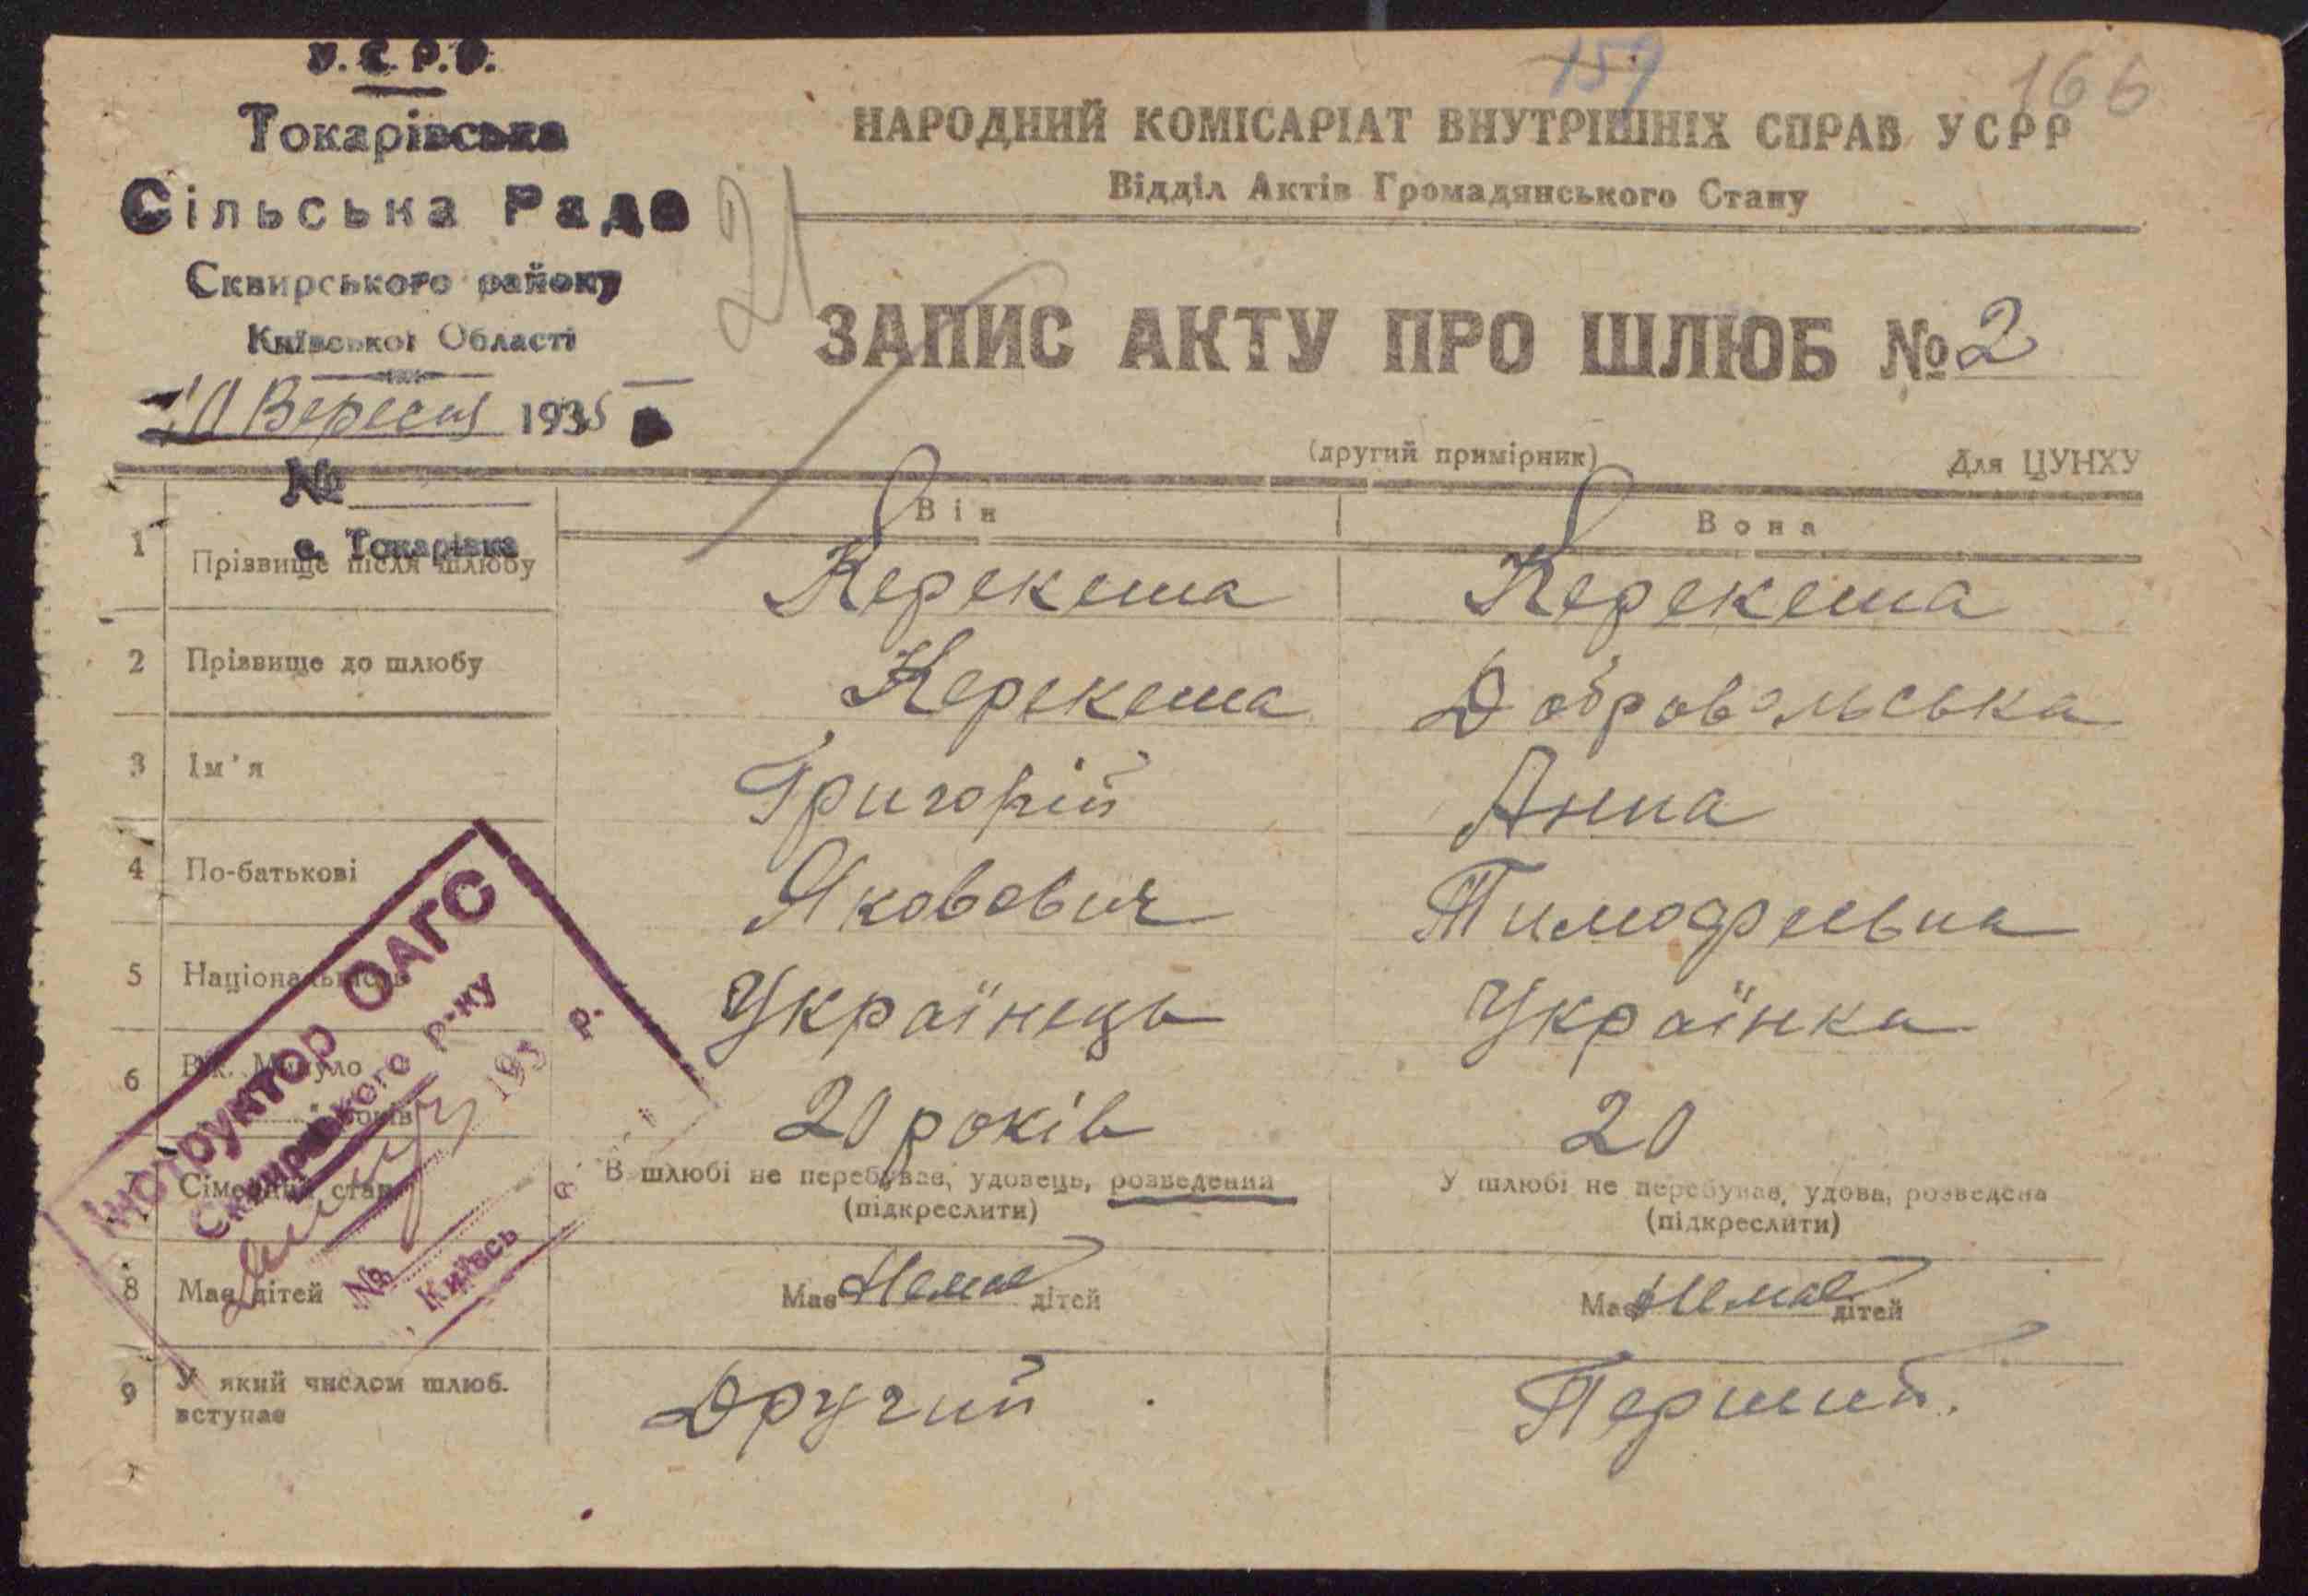 У.С.Р.Р.
Токарівська
Сільська Рада
Сквирського району
Київської Області
10 Вересня 1935
№
с. Токарівка
159
166
21
НАРОДНИЙ КОМІСАРІАТ ВНУТРІШНІХ СПРАВ УСРР
Відділ Актів Громадянського Стану
ЗАПИС АКТУ ПРО ШЛЮБ № 2
(другий примірник) Для ЦУНХУ
Він Вона
1 Прізвище після шлюбу Керекеша Керекеша
2 Прізвище до шлюбу Керекеша Добровольська
3 Ім'я Григорій Анна
4 По-батькові Яковович Тимофеевна
5 Національність Українець Українка
6 Вік. Минуло років 20 років 20
7 Сімейний стан В шлюбі не перебував, удовець, розведений У шлюбі не перебував, удова, розведена
(підкреслити) (підкреслити)
8 Має дітей Має Немае дітей Має Немае дітей
9 У який числом шлюб. вступає Другий Перший.
Інструктор ОАГС
Сквирського р-ну
193 р.
№
Київсь